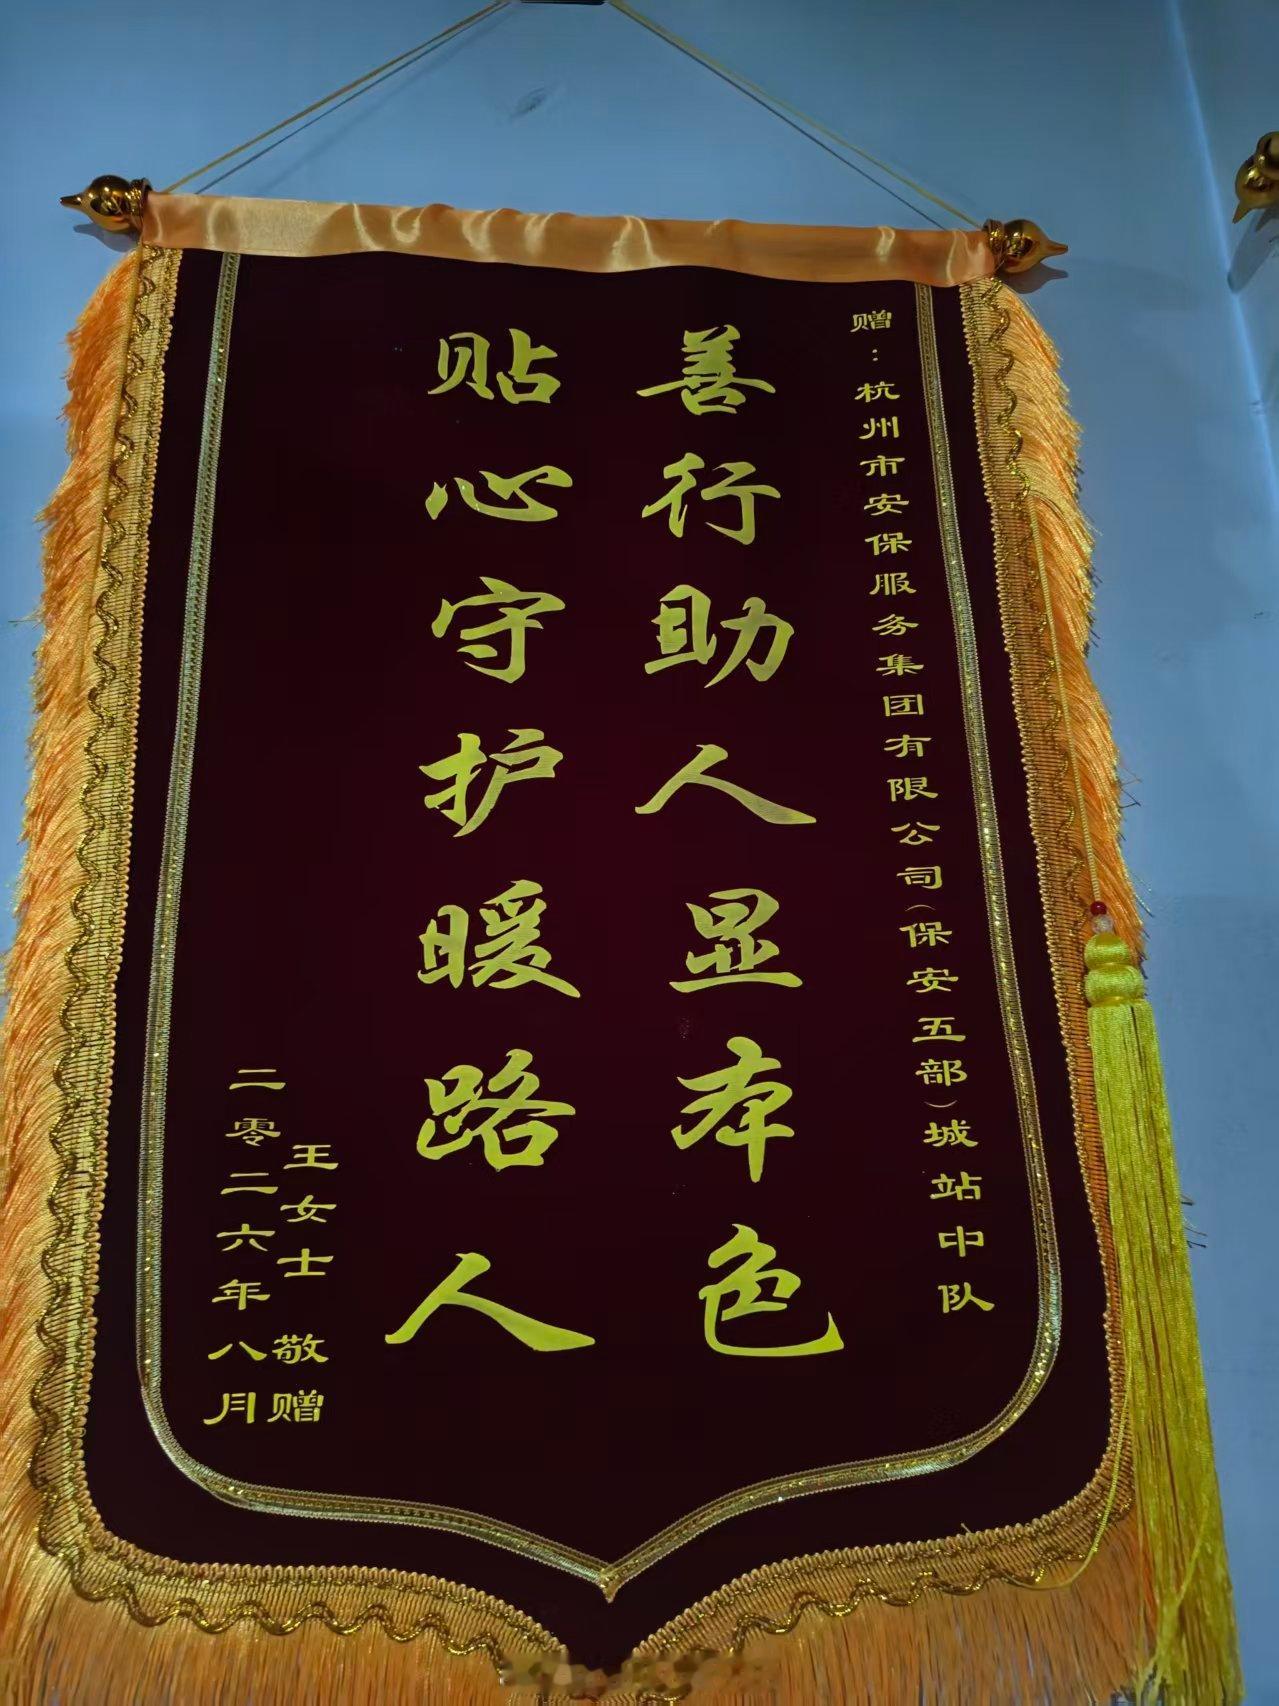 赠：杭州市安保服务集团有限公司（保安五部）城站中队
善行助人显本色
贴心守护暖路人
王女士 敬赠
二零二六年八月